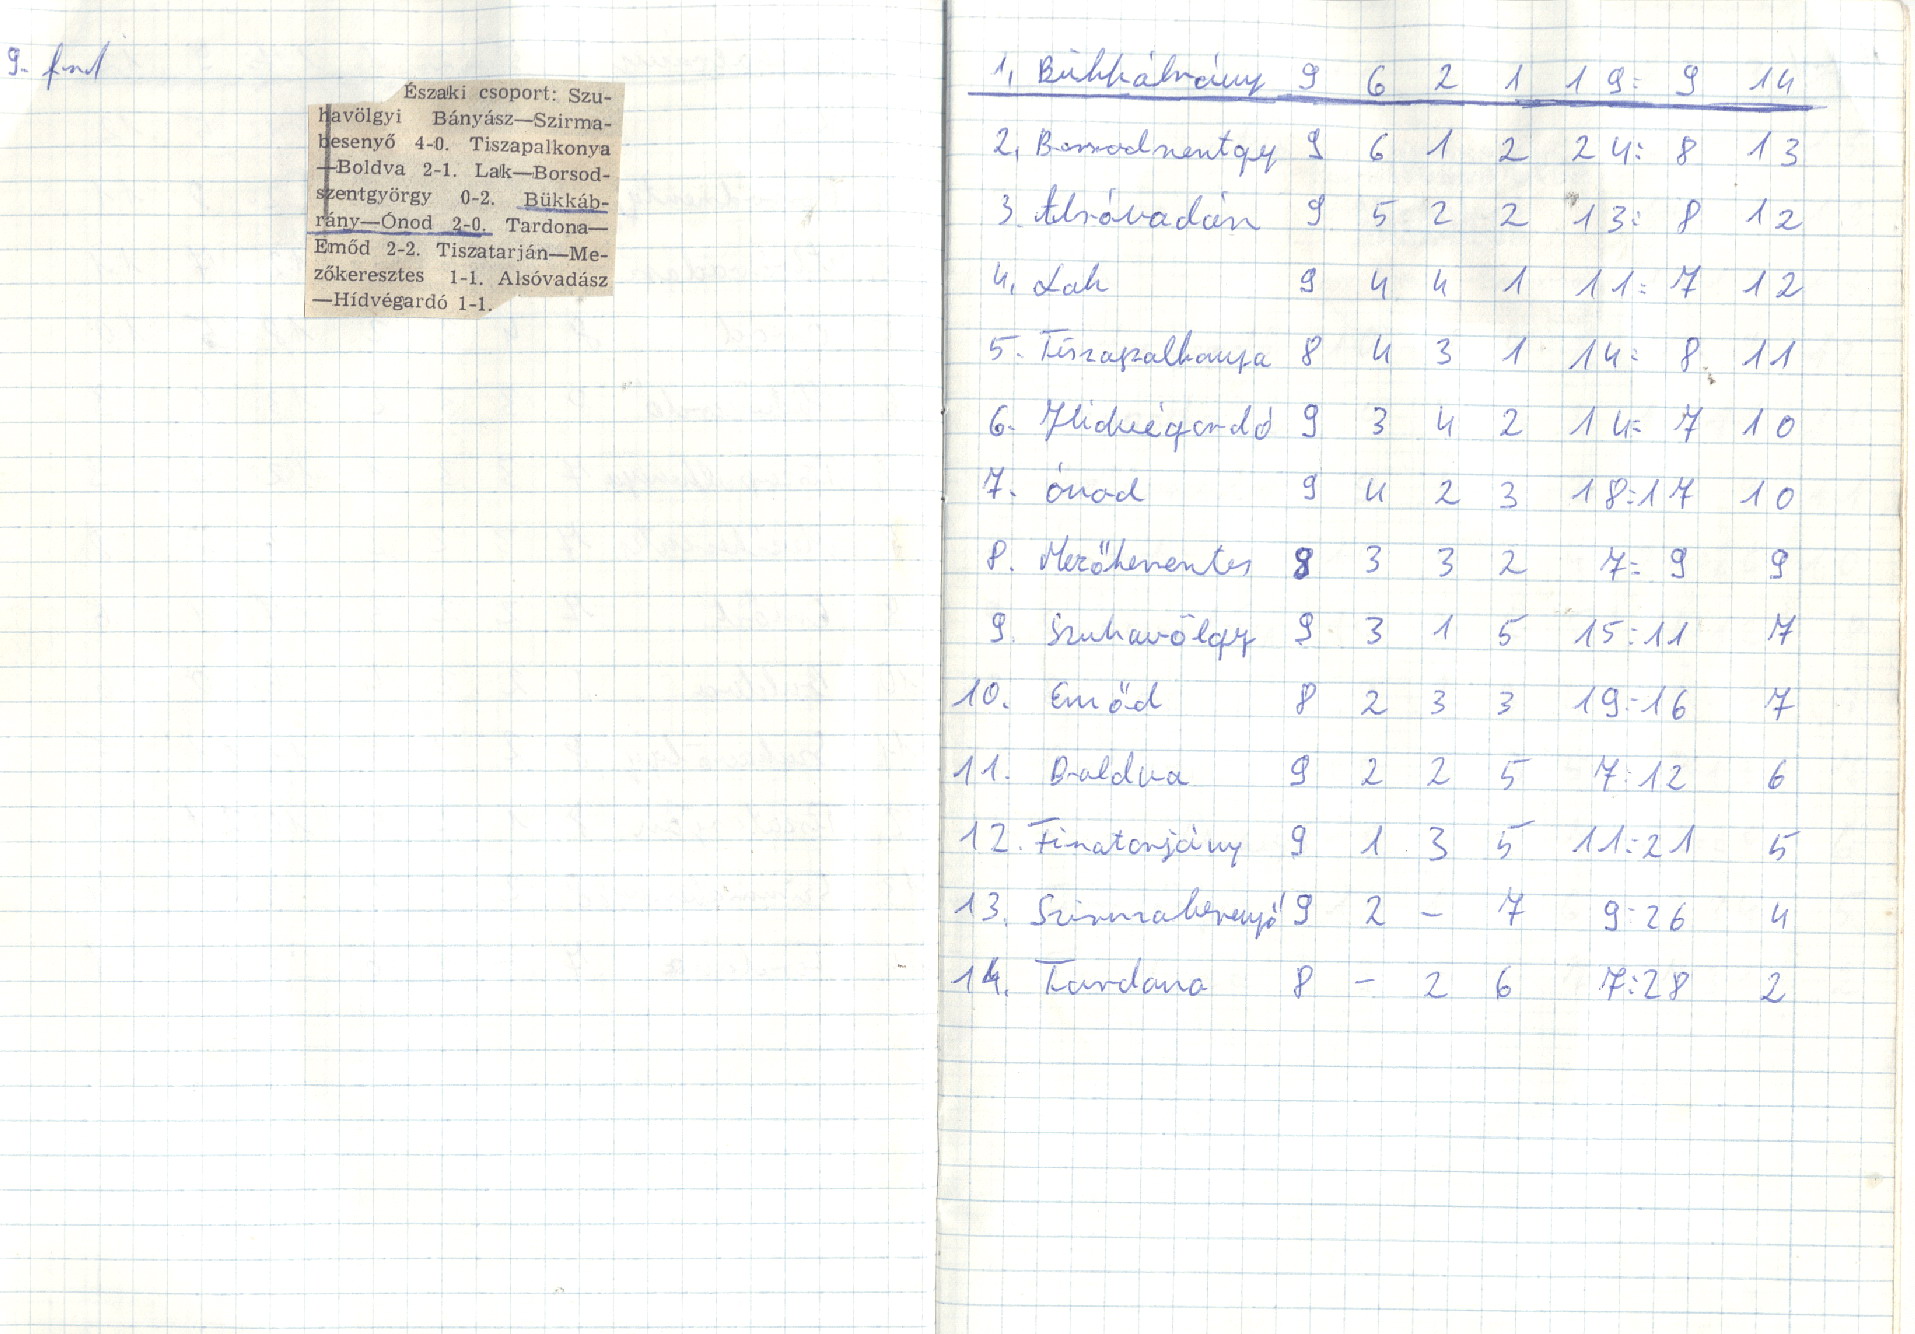 9. ford
Északi csoport: Szu-
havölgyi Bányász—Szirma-
besenyő 4-0. Tiszapalkonya
—Boldva 2-1. Lak—Borsod-
szentgyörgy 0-2. Bükkáb-
rány—Ónod 2-0. Tardona—
Emőd 2-2. Tiszatarján—Me-
zőkeresztes 1-1. Alsóvadász
—Hídvégardó 1-1.
1, Bükkábrány 9 6 2 1 19: 9 14
2, Borsodszentgy 9 6 1 2 24: 8 13
3. Alsóvadász 9 5 2 2 13: 8 12
4, Lak 9 4 4 1 11: 7 12
5. Tiszapalkonya 8 4 3 1 14: 8 11
6. Hidvégardó 9 3 4 2 14: 7 10
7. Ónod 9 4 2 3 18:17 10
8. Mezőkeresztes 8 3 3 2 7: 9 9
9. Szuhavölgy 9 3 1 5 15:11 7
10. Emőd 8 2 3 3 19:16 7
11. Boldva 9 2 2 5 7:12 6
12. Tiszatarjány 9 1 3 5 11:21 5
13. Szirmabesenyő 9 2 – 7 9:26 4
14. Tardona 8 – 2 6 7:28 2